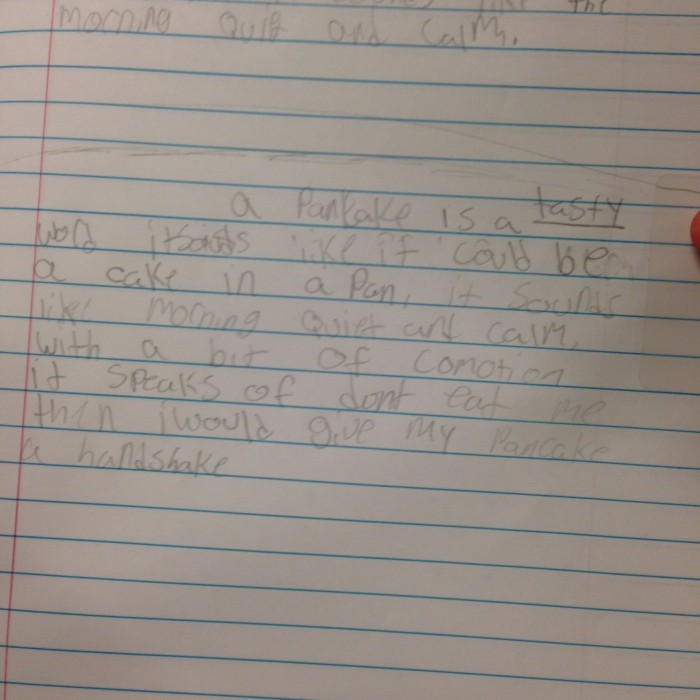 the
morning quiet and calm.
a Pankake is a tasty
word itsounds like it could be
a cake in a Pan, it sounds
like morning quiet and calm,
with a bit of comotion
it speaks of dont eat me
then i would give my Pancake
a handshake